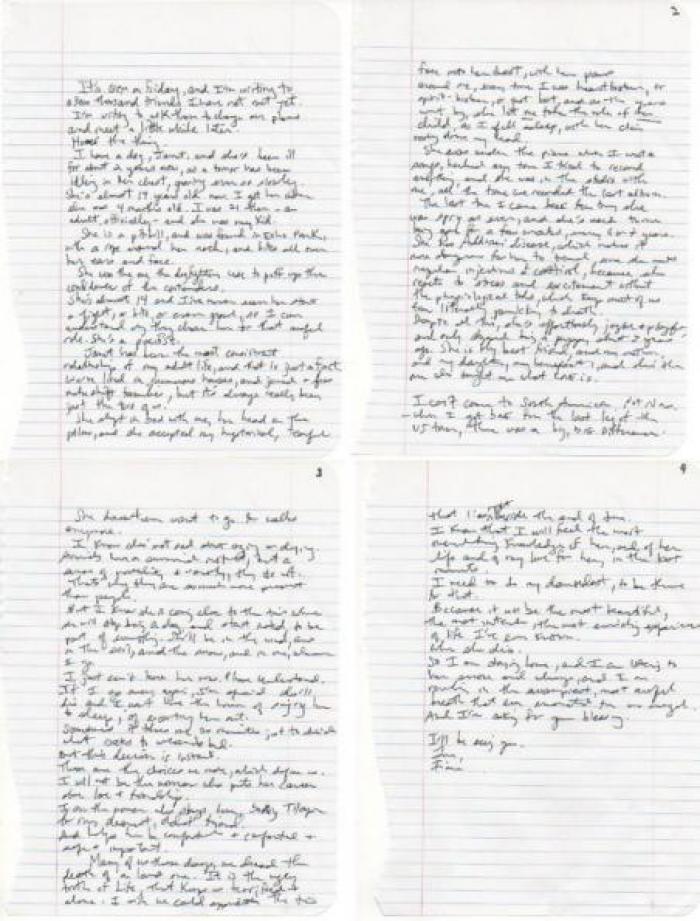 It's 6pm on Friday, and I'm writing to
a few thousand friends I have not met yet.
I'm writing to ask them to change our plans
and meet a little while later.
Here's the thing.
I have a dog, Janet, and she's been ill
for about 2 years now, as a tumor has been
idling in her chest, growing ever so slowly.
She's almost 14 years old now. I got her when
she was 4 months old. I was 21 then - an
adult, officially - and she was my kid.
She is a pitbull, and was found in Echo Park,
with a rope around her neck, and bites all over
her ears and face.
She was the one the dogfighters use to puff up the
confidence of the contenders.
She's almost 14 and I've never seen her start
a fight, or bite, or even growl, so I can
understand why they chose her for that awful
role. She's a pacifist.
Janet has been the most consistent
relationship of my adult life, and that is just a fact.
We've lived in numerous houses, and joined a few
makeshift families, but it's always really been
just the two of us.
She slept in bed with me, her head on the
pillow, and she accepted my hysterical, tearful
2
face into her chest, with her paws
around me, every time I was heartbroken, or
spirit-broken, or just lost, and as the years
went by, she let me take the role of her
child, as I fell asleep, with her chin
resting above my head.
She was under the piano when I wrote
songs, barked any time I tried to record
anything, and she was in the studio with
me, all the time we recorded the last album.
The last time I came back from tour, she
was spry as ever, and she's used to me
being gone for a few weeks, every 6 or 7 years.
She has Addison's disease, which makes it
more dangerous for her to travel, since she needs
regular injections of Cortisol, because she
reacts to stress and excitement without
the physiological tools which keep most of us
from literally panicking to death.
Despite all this, she's effortlessly joyful & playful,
and only stopped being a puppy about 3 years
ago. She is my best friend, and my mother,
and my daughter, my benefactor, and she's the
one who taught me what love is.
I can't come to South America. Not now.
- When I got back from the last leg of the
US tour, there was a big, big difference.
3
She doesn't even want to go for walks
anymore.
I know she's not sad about aging or dying.
Animals have a survival instinct, but a
sense of mortality & vanity, they do not.
That's why they are so much more present
than people.
But I know she is coming close to the time where
she will stop being a dog and start instead to be
part of everything. She'll be in the wind, and
in the soil, and the snow, and in me, wherever
I go.
I just can't leave her now. Please understand.
If I go away again, I'm afraid she'll
die and I won't have the honor of singing her
to sleep, of escorting her out.
Sometimes it takes me 20 minutes just to decide
what socks to wear to bed.
But this decision is instant.
These are the choices we make, which define us.
I will not be the woman who puts her career
above love & friendship.
I am the woman who stays home, baking Tilapia
for my dearest, oldest friend.
And helps her be comfortable & comforted &
safe & important.
Many of us these days, we dread the
death of a loved one. It is the ugly
truth of life, that keeps us terrified &
alone. I wish we could appreciate the time
4
that lies right beside the end of time.
I know that I will feel the most
overwhelming knowledge of her, and of her
life and of my love for her, in the last
moments.
I need to do my damndest, to be there
for that.
Because it will be the most beautiful,
the most intense, the most enriching experience
of life I've ever known.
When she dies.
So I am staying home, and I am listening to
her snore and wheeze, and I am
reveling in the swampiest, most awful
breath that ever emanated from an angel.
And I'm asking for your blessing.
I'll be seeing you.
Love,
Fiona